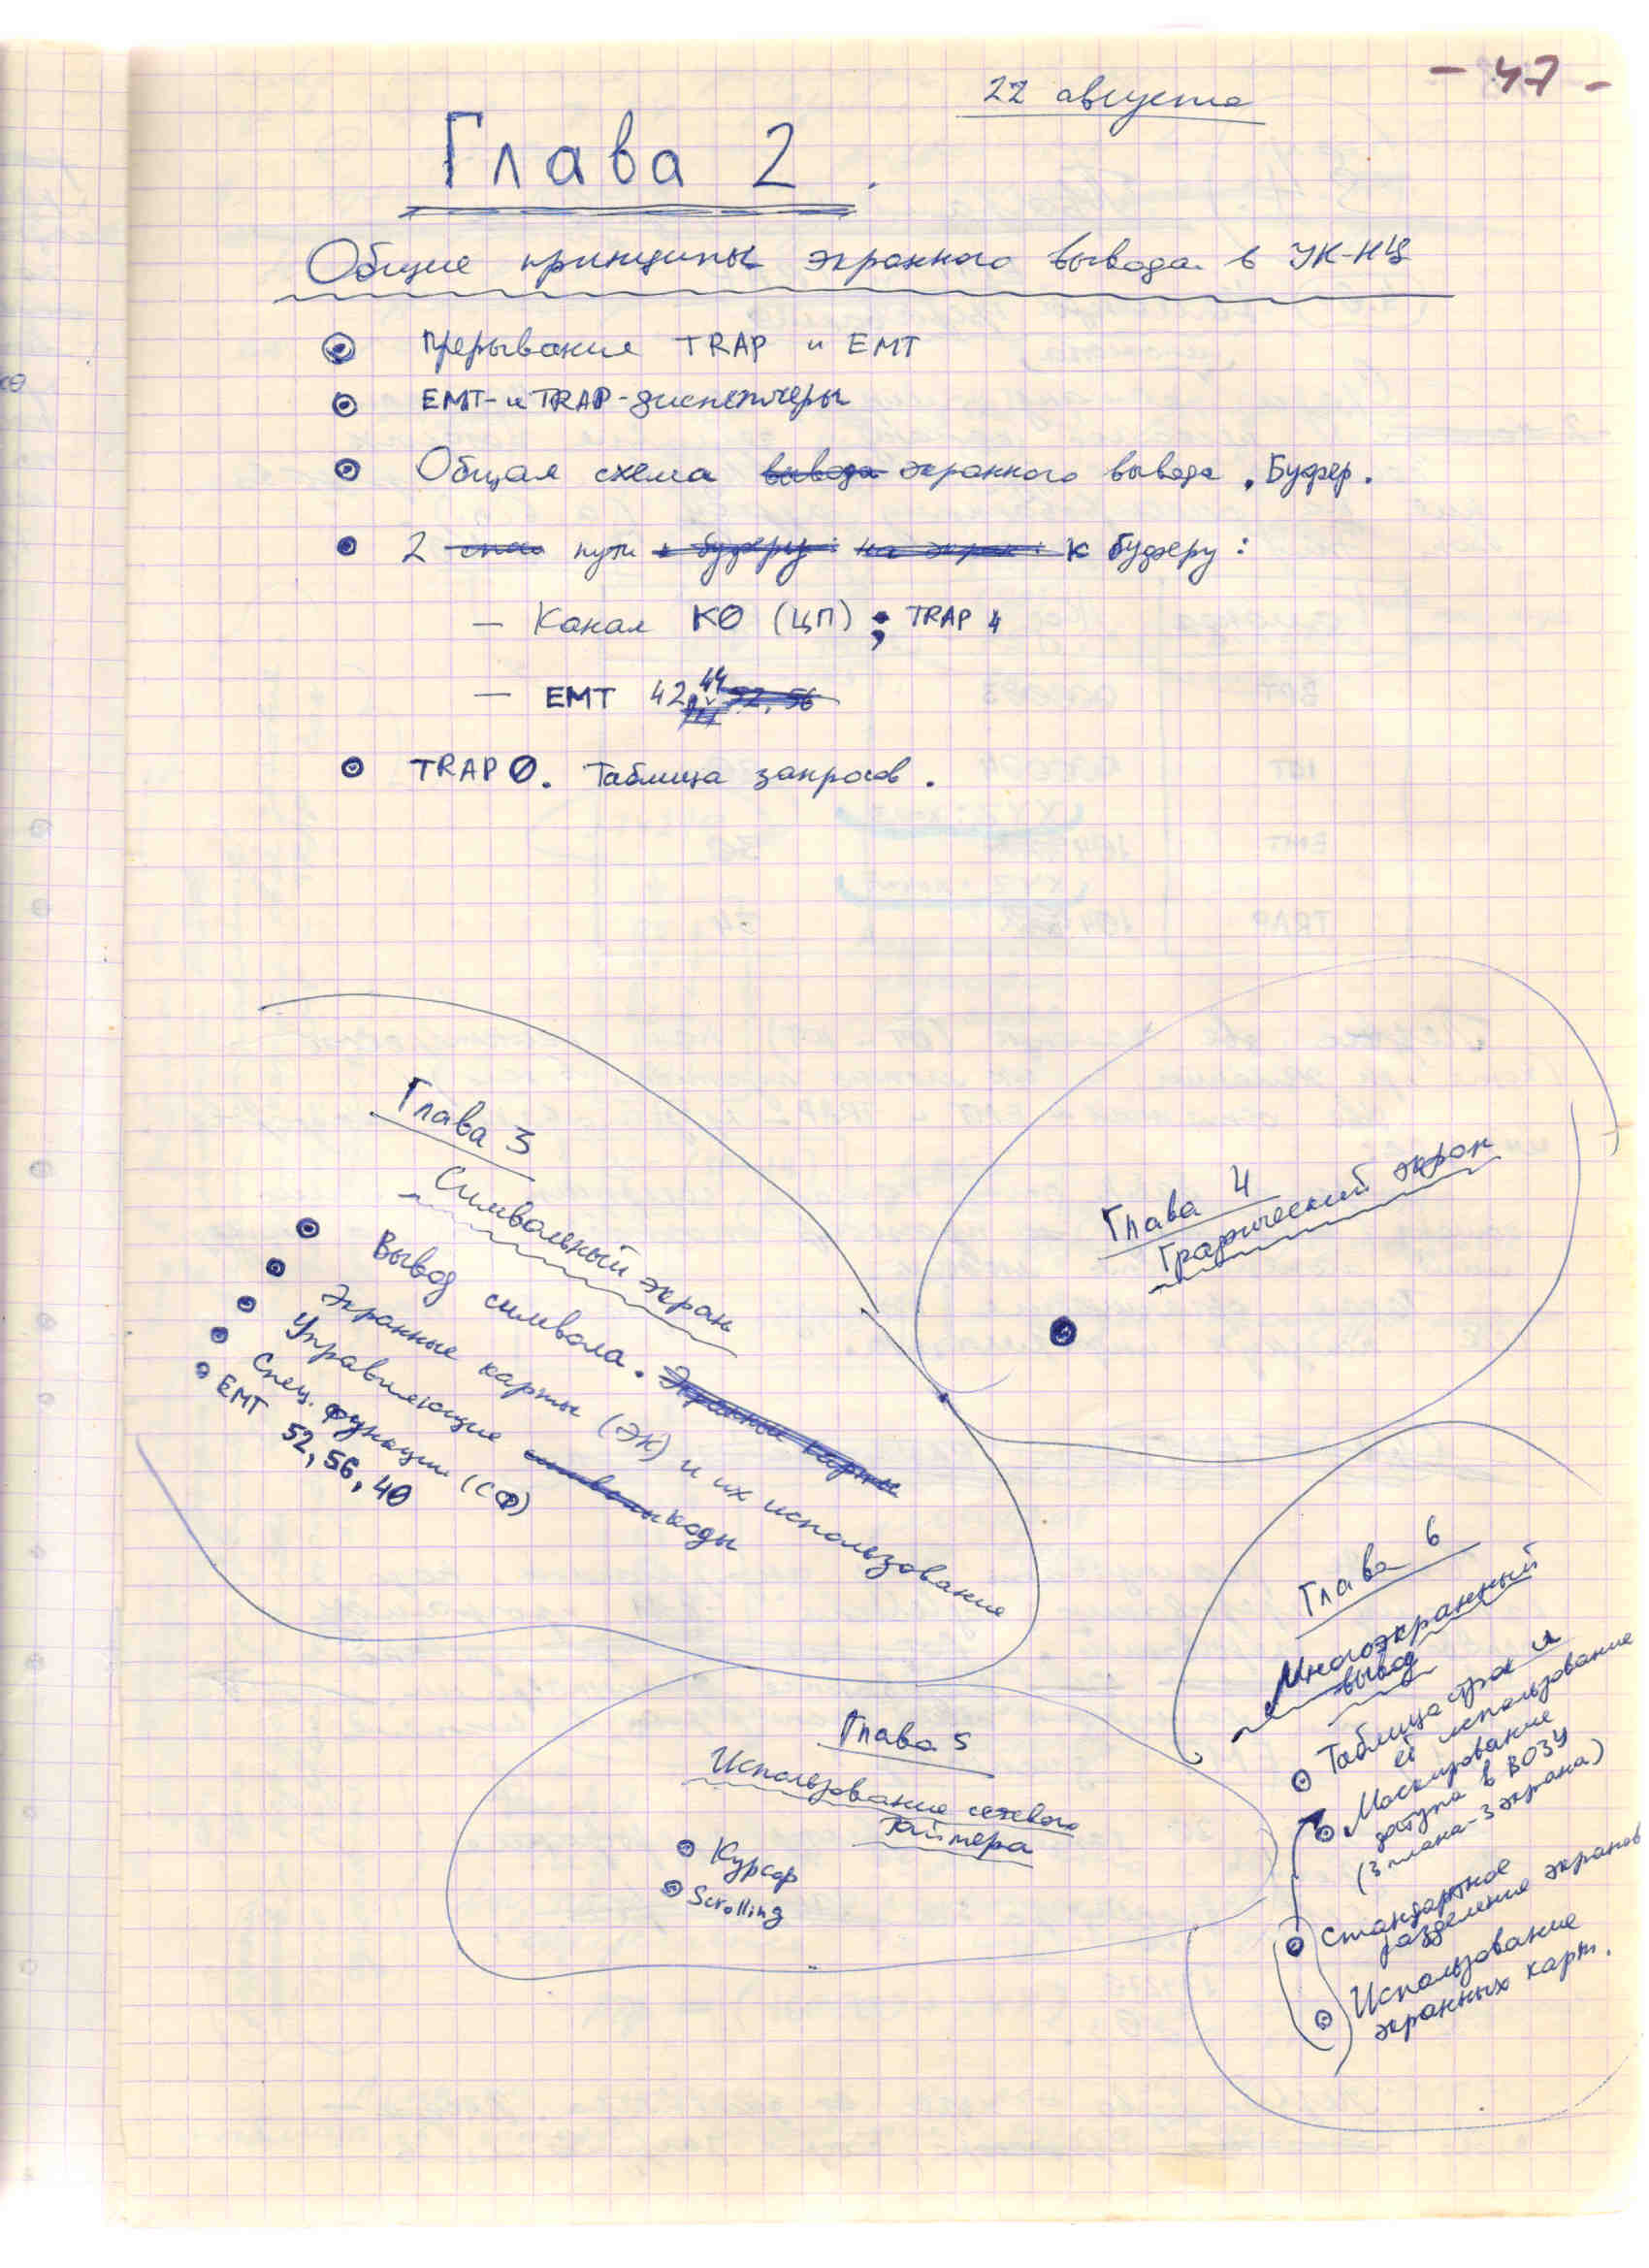 - 47 -
22 августа
Глава 2.
Общие принципы экранного вывода в УК-НЦ
Прерывание TRAP и EMT
EMT- и TRAP-диспетчеры
Общая схема вывода экранного вывода. Буфер.
2 пути к буферу: на экран: к буферу:
— Канал К0 (ЦП); TRAP 4
— EMT 42, 44 52, 56
TRAP 0. Таблица запросов.
Глава 3
Символьный экран
Вывод символа. Экранные карты
Экранные карты (ЭК) и их использование
Управляющие символы коды
Спец. функции (СФ)
EMT 52, 56, 40
Глава 4
Графический экран
Глава 5
Использование сетевого
таймера
Курсор
Scrolling
Глава 6
Многоэкранный
вывод
Таблица строк и
её использование
Маскирование
доступа в ВОЗУ
(3 плана - 3 экрана)
Стандартное
разделение экранов
Использование
экранных карт.